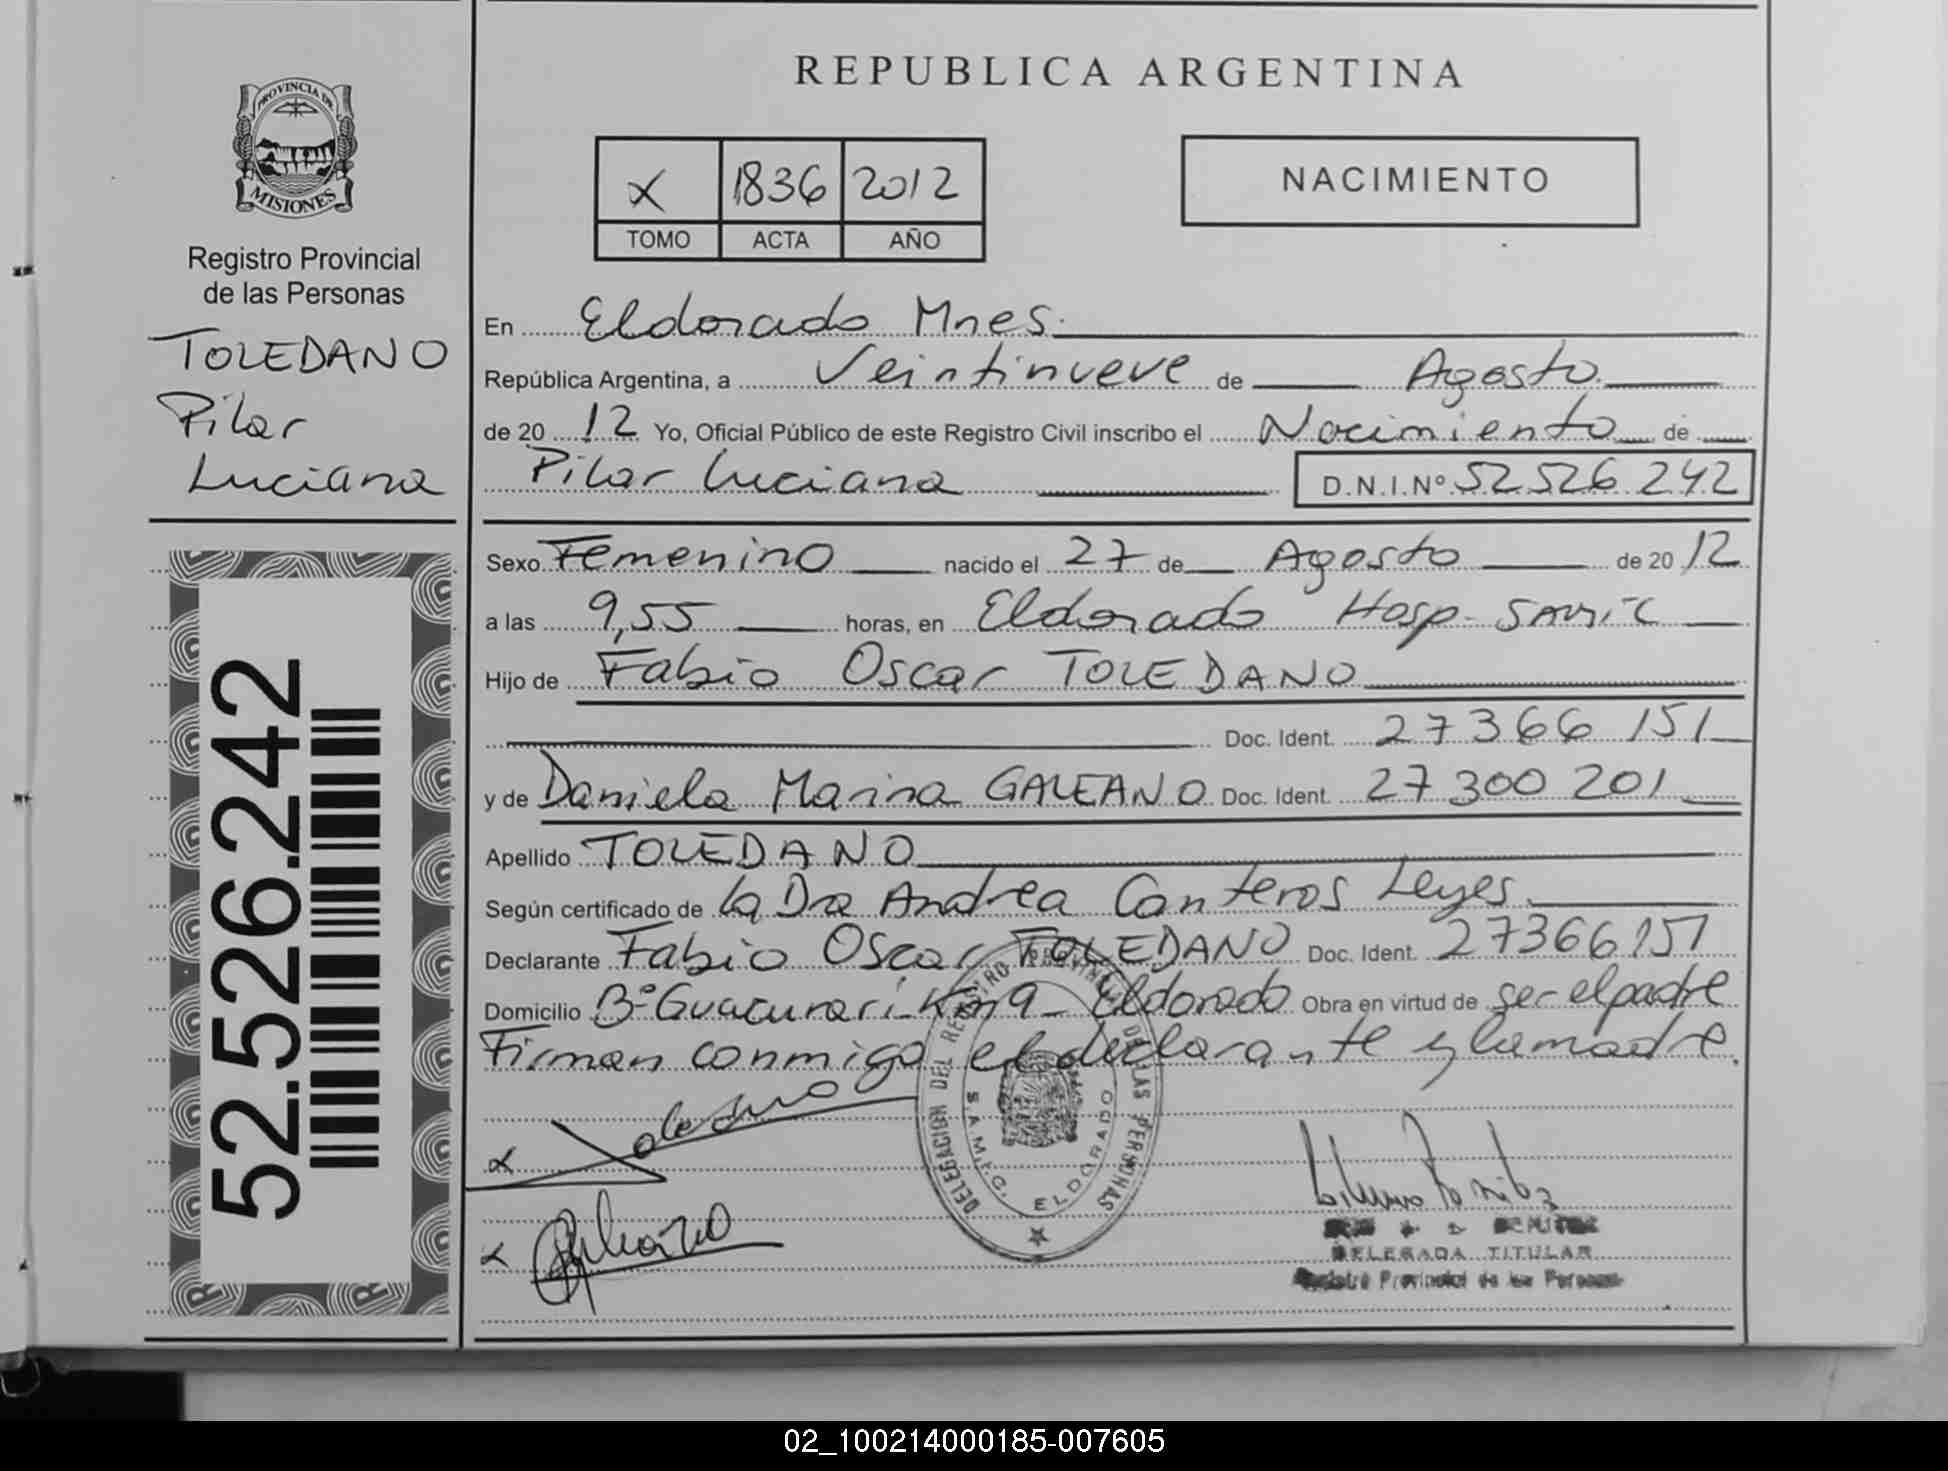 PROVINCIA DE
MISIONES
Registro Provincial
de las Personas
TOLEDANO
Pilar
Luciana
52.526.242
REPUBLICA ARGENTINA
X 1836 2012
TOMO ACTA AÑO
NACIMIENTO
En Eldorado Mnes.
República Argentina, a Veintinueve de Agosto
de 20 12 Yo, Oficial Público de este Registro Civil inscribo el Nacimiento de
Pilar Luciana D.N.I.Nº 52 526 242
Sexo Femenino nacido el 27 de Agosto de 20 12
a las 9,55 horas, en Eldorado Hosp. SAMIC
Hijo de Fabio Oscar TOLEDANO
Doc. Ident. 27 366 151
y de Daniela Marina GALEANO Doc. Ident. 27 300 201
Apellido TOLEDANO
Según certificado de la Dra Andrea Canteros Leyes
Declarante Fabio Oscar TOLEDANO Doc. Ident. 27366151
Domicilio Bº Guacurari Km 9 Eldorado Obra en virtud de ser el padre
Firman conmigo el declarante y la madre.
DELEGACION DEL REGISTRO PROVINCIAL DE LAS PERSONAS
S.A.M.I.C. ELDORADO
X Toledano
X Galeano
BENITEZ
DELEGADA TITULAR
Registro Provincial de las Personas
02_100214000185-007605